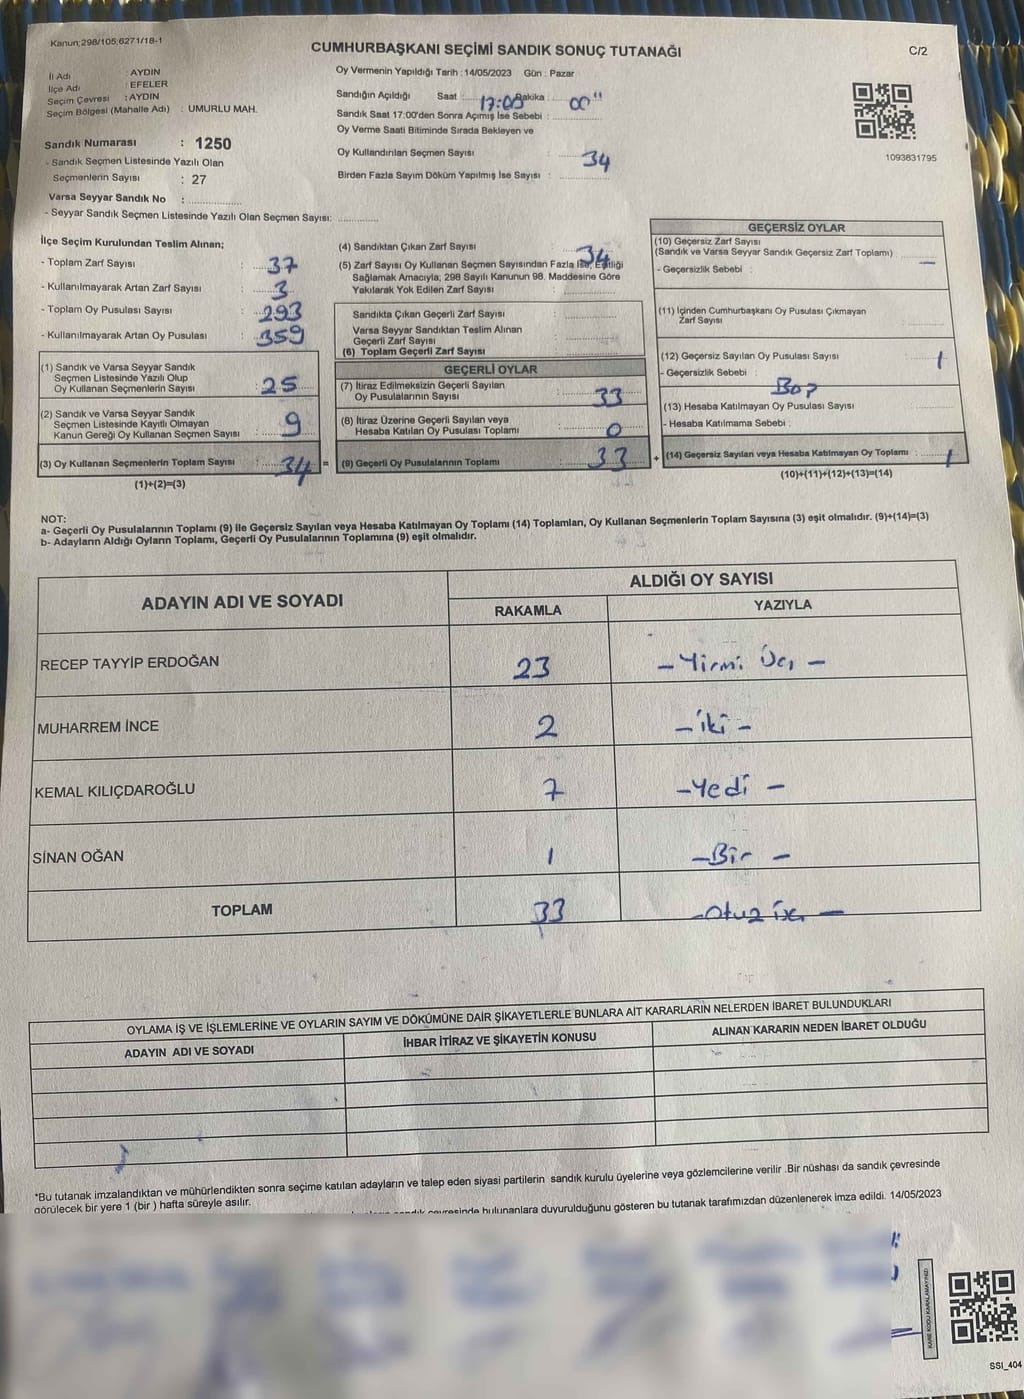 Kanun;298/105;6271/18-1
CUMHURBAŞKANI SEÇİMİ SANDIK SONUÇ TUTANAĞI
C/2
İl Adı : AYDIN
İlçe Adı : EFELER
Seçim Çevresi : AYDIN
Seçim Bölgesi (Mahalle Adı) : UMURLU MAH.
Sandık Numarası : 1250
- Sandık Seçmen Listesinde Yazılı Olan
Seçmenlerin Sayısı : 27
Varsa Seyyar Sandık No :
- Seyyar Sandık Seçmen Listesinde Yazılı Olan Seçmen Sayısı:
Oy Vermenin Yapıldığı Tarih : 14/05/2023 Gün : Pazar
Sandığın Açıldığı Saat : 17:00 Dakika : 00
Sandık Saat 17:00'den Sonra Açımış İse Sebebi :
Oy Verme Saati Bitiminde Sırada Bekleyen ve
Oy Kullandırılan Seçmen Sayısı : 34
Birden Fazla Sayım Döküm Yapılmış İse Sayısı :
1093831795
İlçe Seçim Kurulundan Teslim Alınan;
- Toplam Zarf Sayısı : 37
- Kullanılmayarak Artan Zarf Sayısı : 3
- Toplam Oy Pusulası Sayısı : 293
- Kullanılmayarak Artan Oy Pusulası : 359
(1) Sandık ve Varsa Seyyar Sandık
Seçmen Listesinde Yazılı Olup
Oy Kullanan Seçmenlerin Sayısı : 25
(2) Sandık ve Varsa Seyyar Sandık
Seçmen Listesinde Kayıtlı Olmayan
Kanun Gereği Oy Kullanan Seçmen Sayısı : 9
(3) Oy Kullanan Seçmenlerin Toplam Sayısı : 34 =
(1)+(2)=(3)
(4) Sandıktan Çıkan Zarf Sayısı : 34
(5) Zarf Sayısı Oy Kullanan Seçmen Sayısından Fazla İse, Eşitliği
Sağlamak Amacıyla, 298 Sayılı Kanunun 98. Maddesine Göre
Yakılarak Yok Edilen Zarf Sayısı :
Sandıkta Çıkan Geçerli Zarf Sayısı :
Varsa Seyyar Sandıktan Teslim Alınan
Geçerli Zarf Sayısı :
(6) Toplam Geçerli Zarf Sayısı :
GEÇERLİ OYLAR
(7) İtiraz Edilmeksizin Geçerli Sayılan
Oy Pusulalarının Sayısı : 33
(8) İtiraz Üzerine Geçerli Sayılan veya
Hesaba Katılan Oy Pusulası Toplamı : 0
(9) Geçerli Oy Pusulalarının Toplamı : 33 +
GEÇERSİZ OYLAR
(10) Geçersiz Zarf Sayısı
(Sandık ve Varsa Seyyar Sandık Geçersiz Zarf Toplamı) : —
- Geçersizlik Sebebi :
(11) İçinden Cumhurbaşkanı Oy Pusulası Çıkmayan
Zarf Sayısı :
(12) Geçersiz Sayılan Oy Pusulası Sayısı : 1
- Geçersizlik Sebebi :
(13) Hesaba Katılmayan Oy Pusulası Sayısı :
- Hesaba Katılmama Sebebi :
(14) Geçersiz Sayılan veya Hesaba Katılmayan Oy Toplamı : 1
(10)+(11)+(12)+(13)=(14)
NOT:
a- Geçerli Oy Pusulalarının Toplamı (9) ile Geçersiz Sayılan veya Hesaba Katılmayan Oy Toplamı (14) Toplamları, Oy Kullanan Seçmenlerin Toplam Sayısına (3) eşit olmalıdır. (9)+(14)=(3)
b- Adayların Aldığı Oyların Toplamı, Geçerli Oy Pusulalarının Toplamına (9) eşit olmalıdır.
ADAYIN ADI VE SOYADI
ALDIĞI OY SAYISI
RAKAMLA YAZIYLA
RECEP TAYYİP ERDOĞAN 23 - Yirmi Üç -
MUHARREM İNCE 2 - iki -
KEMAL KILIÇDAROĞLU 7 - Yedi -
SİNAN OĞAN 1 - Bir -
TOPLAM 33 - otuz üç -
OYLAMA İŞ VE İŞLEMLERİNE VE OYLARIN SAYIM VE DÖKÜMÜNE DAİR ŞİKAYETLERLE BUNLARA AİT KARARLARIN NELERDEN İBARET BULUNDUKLARI
ADAYIN ADI VE SOYADI İHBAR İTİRAZ VE ŞİKAYETİN KONUSU ALINAN KARARIN NEDEN İBARET OLDUĞU
*Bu tutanak imzalandıktan ve mühürlendikten sonra seçime katılan adayların ve talep eden siyasi partilerin sandık kurulu üyelerine veya gözlemcilerine verilir .Bir nüshası da sandık çevresinde
görülecek bir yere 1 (bir ) hafta süreyle asılır.
sandık çevresinde bulunanlara duyurulduğunu gösteren bu tutanak tarafımızdan düzenlenerek imza edildi. 14/05/2023
KARE KODU KARALAMAYINIZ
SSI_404